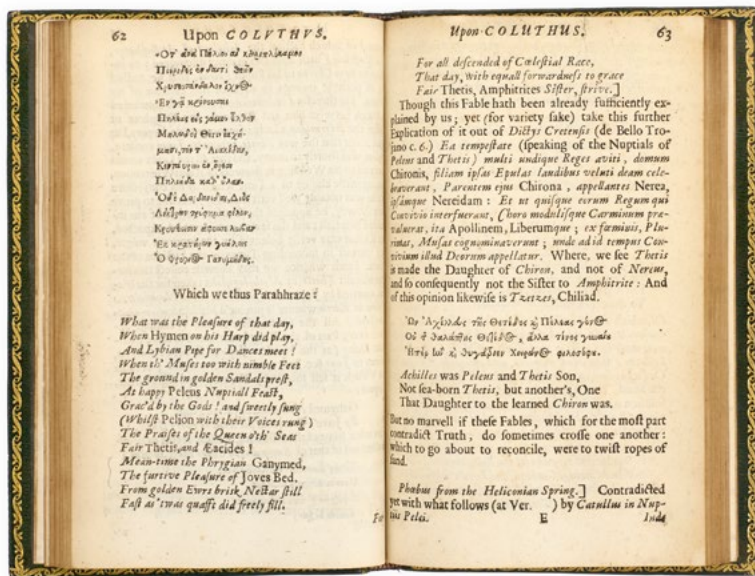 62 Upon COLVTHVS.
Πιερίδες ἐν δαιτὶ θεῶν
Χρυσεοσάνδαλον ἴχνος
Ἐν γᾷ κρούουσαι
Πηλέως εἰς γάμον ἦλθον
μασι, τόν τ' Αἰακίδαν,
Πηλιάδα καθ' ὕλαν.
Ὁ δὲ Δαρδανίδας, Διὸς
Ὁ Φρύγιος Γανυμήδης.
Which we thus Parahhraze:
What was the Pleaſure of that day,
When Hymen on his Harp did play,
And Lybian Pipe for Dances meet!
When th' Muſes too with nimble Feet
The ground in golden Sandals preſt,
At happy Peleus Nuptiall Feaſt,
Grac'd by the Gods! and ſweetly ſung
(Whilſt Pelion with their Voices rung)
The Praiſes of the Queen o'th' Seas
Fair Thetis, and Æacides!
Mean-time the Phrygian Ganymed,
The furtive Pleaſure of Joves Bed.
From golden Ewrs brisk Nectar ſtill
Faſt as 'twas quafft did freely fill.
Fo
Upon COLUTHUS. 63
For all deſcended of Cœleſtial Race,
That day, with equall forwardneſs to grace
Fair Thetis, Amphitrites Siſter, ſtrive.]
Though this Fable hath been already ſufficiently ex-
plained by us; yet (for variety ſake) take this further
Explication of it out of Dictys Cretenſis (de Bello Tro-
jano c. 6.) Ea tempeſtate (ſpeaking of the Nuptials of
Peleus and Thetis) multi undique Reges aviti, domum
Chironis, filiam ipſas Epulas laudibus veluti deam cele-
braverant, Parentem ejus Chirona, appellantes Nerea,
ipſamque Nereidam: Et ut quiſque eorum Regum qui
Convivio interfuerant, Choro moduliſque Carminum præ-
valuerat, ita Apollinem, Liberumque; ex fœmiuis, Plu-
rimas, Muſas cognominaverunt; unde ad id tempus Con-
vivium illud Deorum appellatur. Where, we ſee Thetis
is made the Daughter of Chiron, and not of Nereus,
and ſo conſequently not the Siſter to Amphitrite: And
of this opinion likewiſe is Tzetzes, Chiliad.
Achilles was Peleus and Thetis Son,
Not ſea-born Thetis, but another's, One
That Daughter to the learned Chiron was.
But no marvell if theſe Fables, which for the moſt part
contradict Truth, do ſometimes croſſe one another:
which to go about to reconcile, were to twiſt ropes of
ſand.
Phœbus from the Heliconian Spring.] Contradicted
yet with what follows (at Ver. ) by Catullus in Nup-
tiis Pelei. E Inde